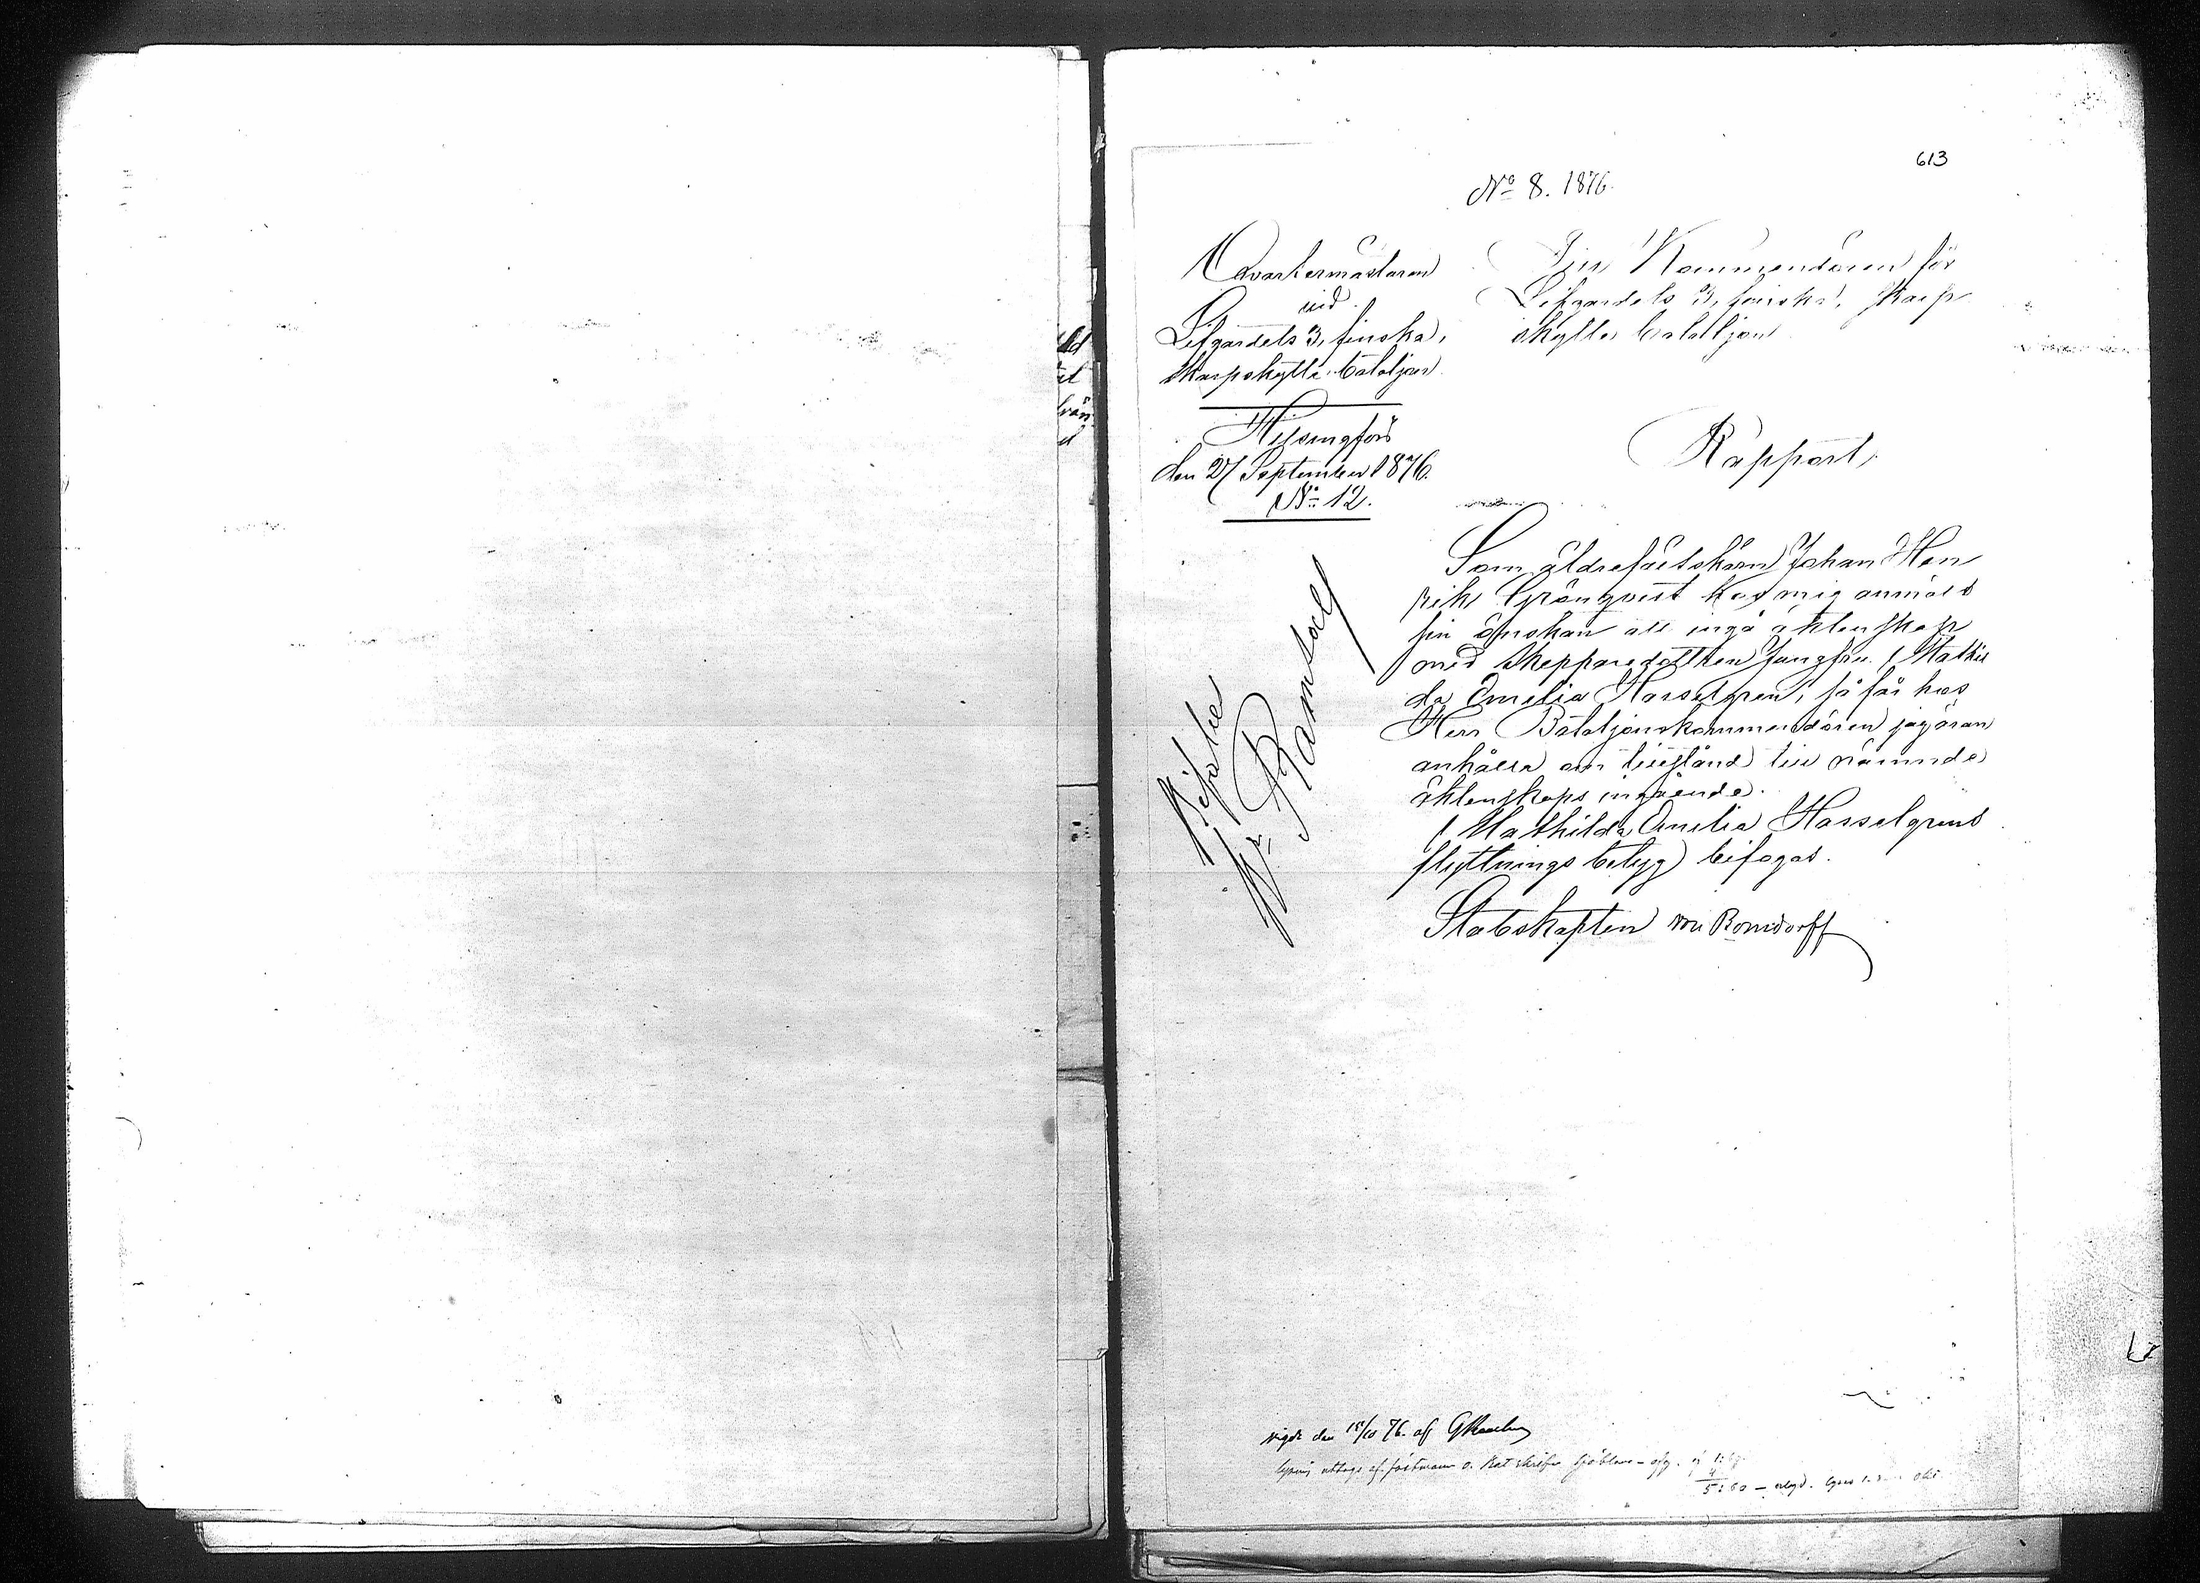 613
No 8. 1876.
Qvartermästaren
vid
Lifgardets 3, finska,
skarpskytte bataljon
Helsingfors
den 27 September 1876.
No 12.
Kommendören för
Lifgardets 3, finska, skarp
skytte bataljon
Rapport,
Som äldrefältskären Johan Hen
rik Grönqvist hos mig anmält
sin önskan att ingå äktenskap
med skepparedottren Jungfru Mathil
da Emelia Hasselgren, så får hos
Herr Bataljonskommendören jag äran
anhålla om tillstånd till nämnde
äktenskaps ingående.
Mathilda Emelia Hasselgrens
flyttnings betyg bifogas.
Stabskapten von
Bifalles
Ramsay
vigde den 15/10 76. af
lysning uttags af
5:60 —
ld
et
d